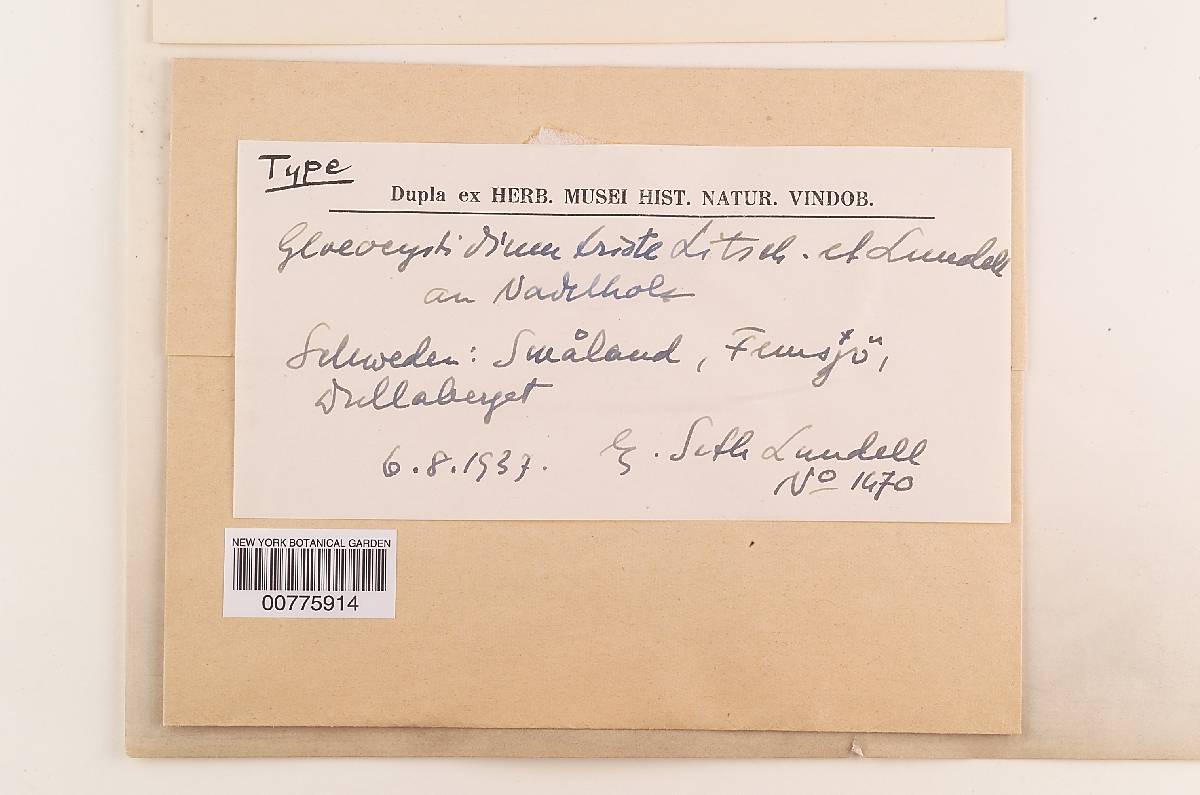 Type
Dupla ex HERB. MUSEI HIST. NATUR. VINDOB.
Gloeocystidium triste Litsch. et Lundell
an Nadelholz
Schweden: Småland, Femsjö,
Dullaberget
6.8.1937. Seth Lundell
No 1470
NEW YORK BOTANICAL GARDEN
00775914